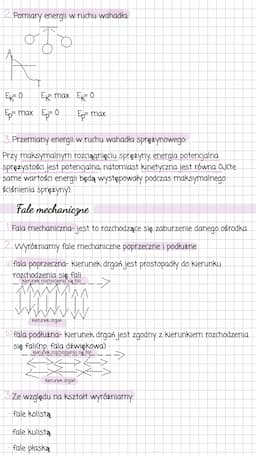 2. Pomiary energii w ruchu wahadła
Ek= 0 Ek= max Ek= 0
Ep= max Ep= 0 Ep= max
3. Przemiany energii w ruchu wahadła sprężynowego
Przy maksymalnym rozciągnięciu sprężyny, energia potencjalna
sprężystości jest potencjalna, natomiast kinetyczna jest równa 0J(te
same wartości energii będą występowały podczas maksymalnego
ściśnienia sprężyny).
Fale mechaniczne
1. Fala mechaniczna- jest to rozchodzące się zaburzenie danego ośrodka.
2. Wyróżniamy fale mechaniczne poprzeczne i podłużne
a) fala poprzeczna- kierunek drgań jest prostopadły do kierunku
rozchodzenia się fali
kierunek rozchodzenia się fali
kierunek drgań
b) fala podłużna- kierunek drgań jest zgodny z kierunkiem rozchodzenia
się fali(np. fala dźwiękowa)
kierunek rozchodzenia się fali
kierunek drgań
3. Ze względu na kształt wyróżniamy:
-fale kolistą
-fale kulistą
-fale płaską